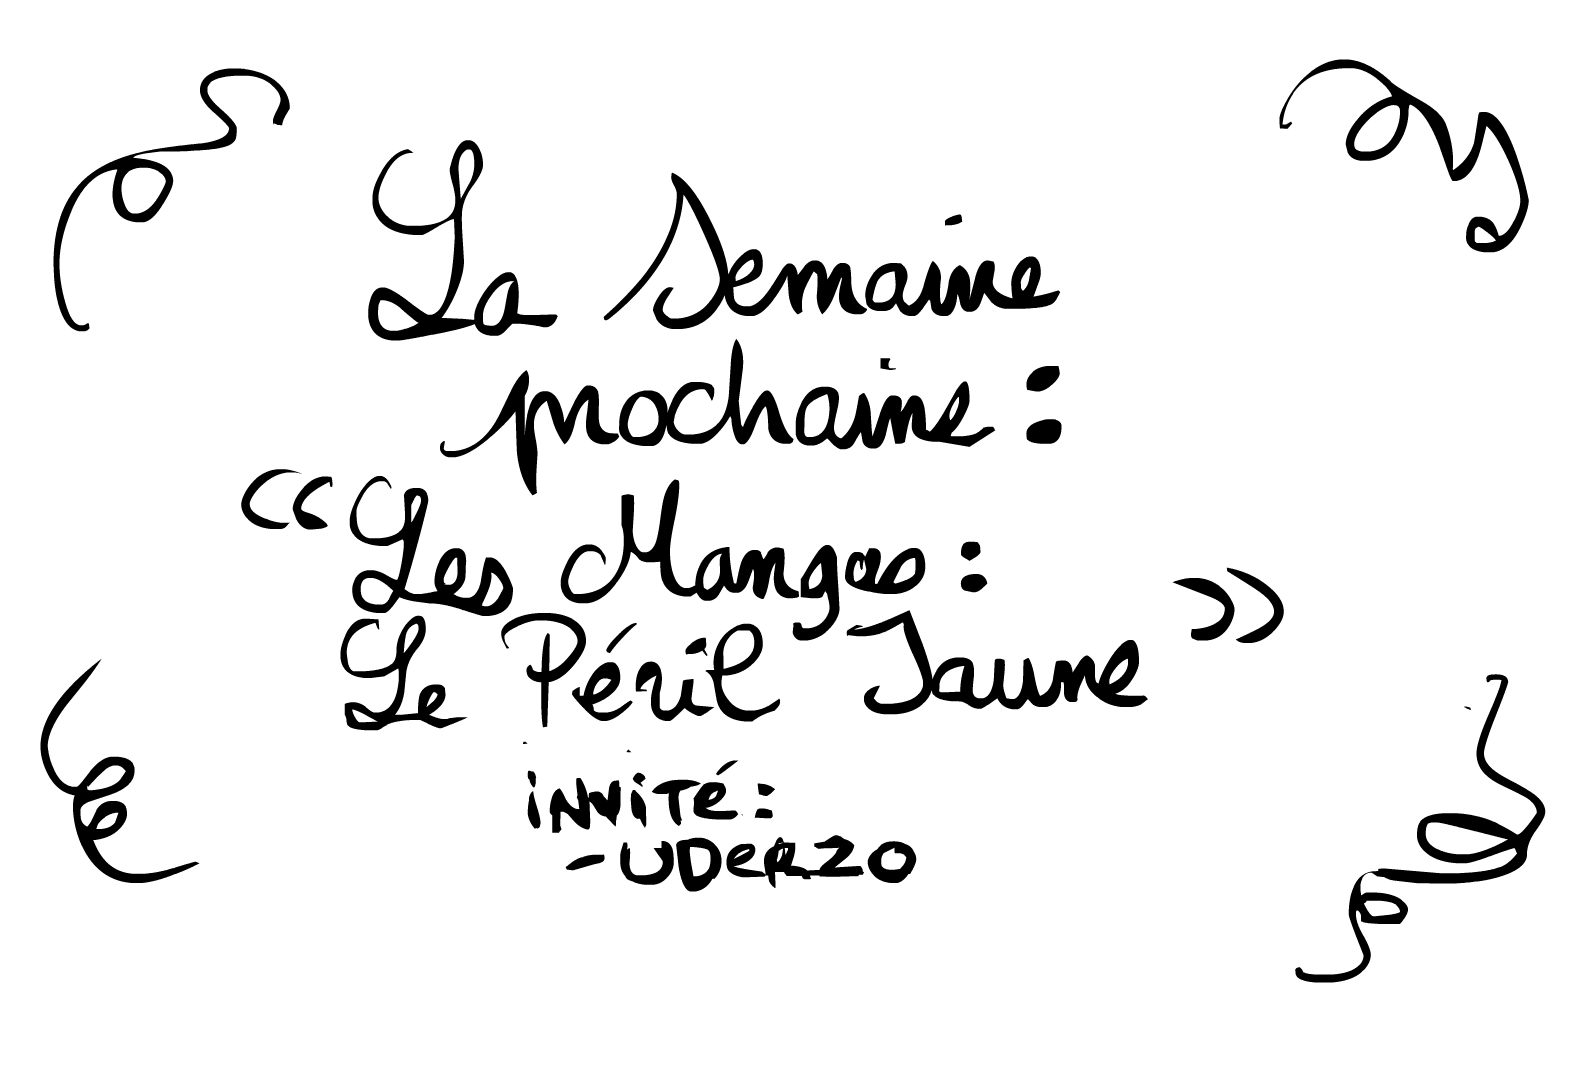 La Semaine
prochaine :
« Les Mangas :
Le Péril Jaune »
iNViTÉ :
- UDeRZO